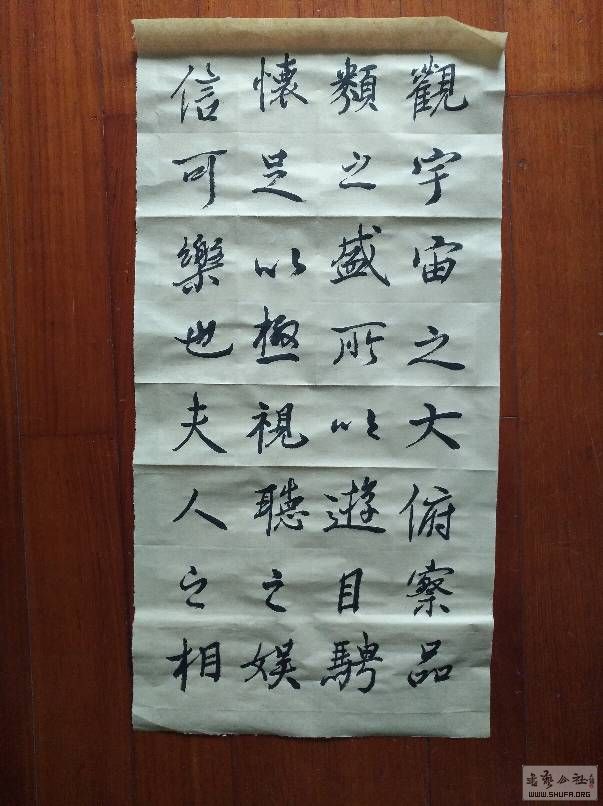 觀宇宙之大俯察品
類之盛所以遊目騁
懷足以極視聽之娛
信可樂也夫人之相
书艺公社
WWW.SHUFA.ORG